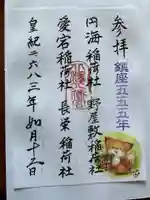 参拝
鎮座五五五年
円海稲荷社 野屋敷稲荷社
愛宕稲荷社 長栄稲荷社
皇紀二六八三年如月十三日